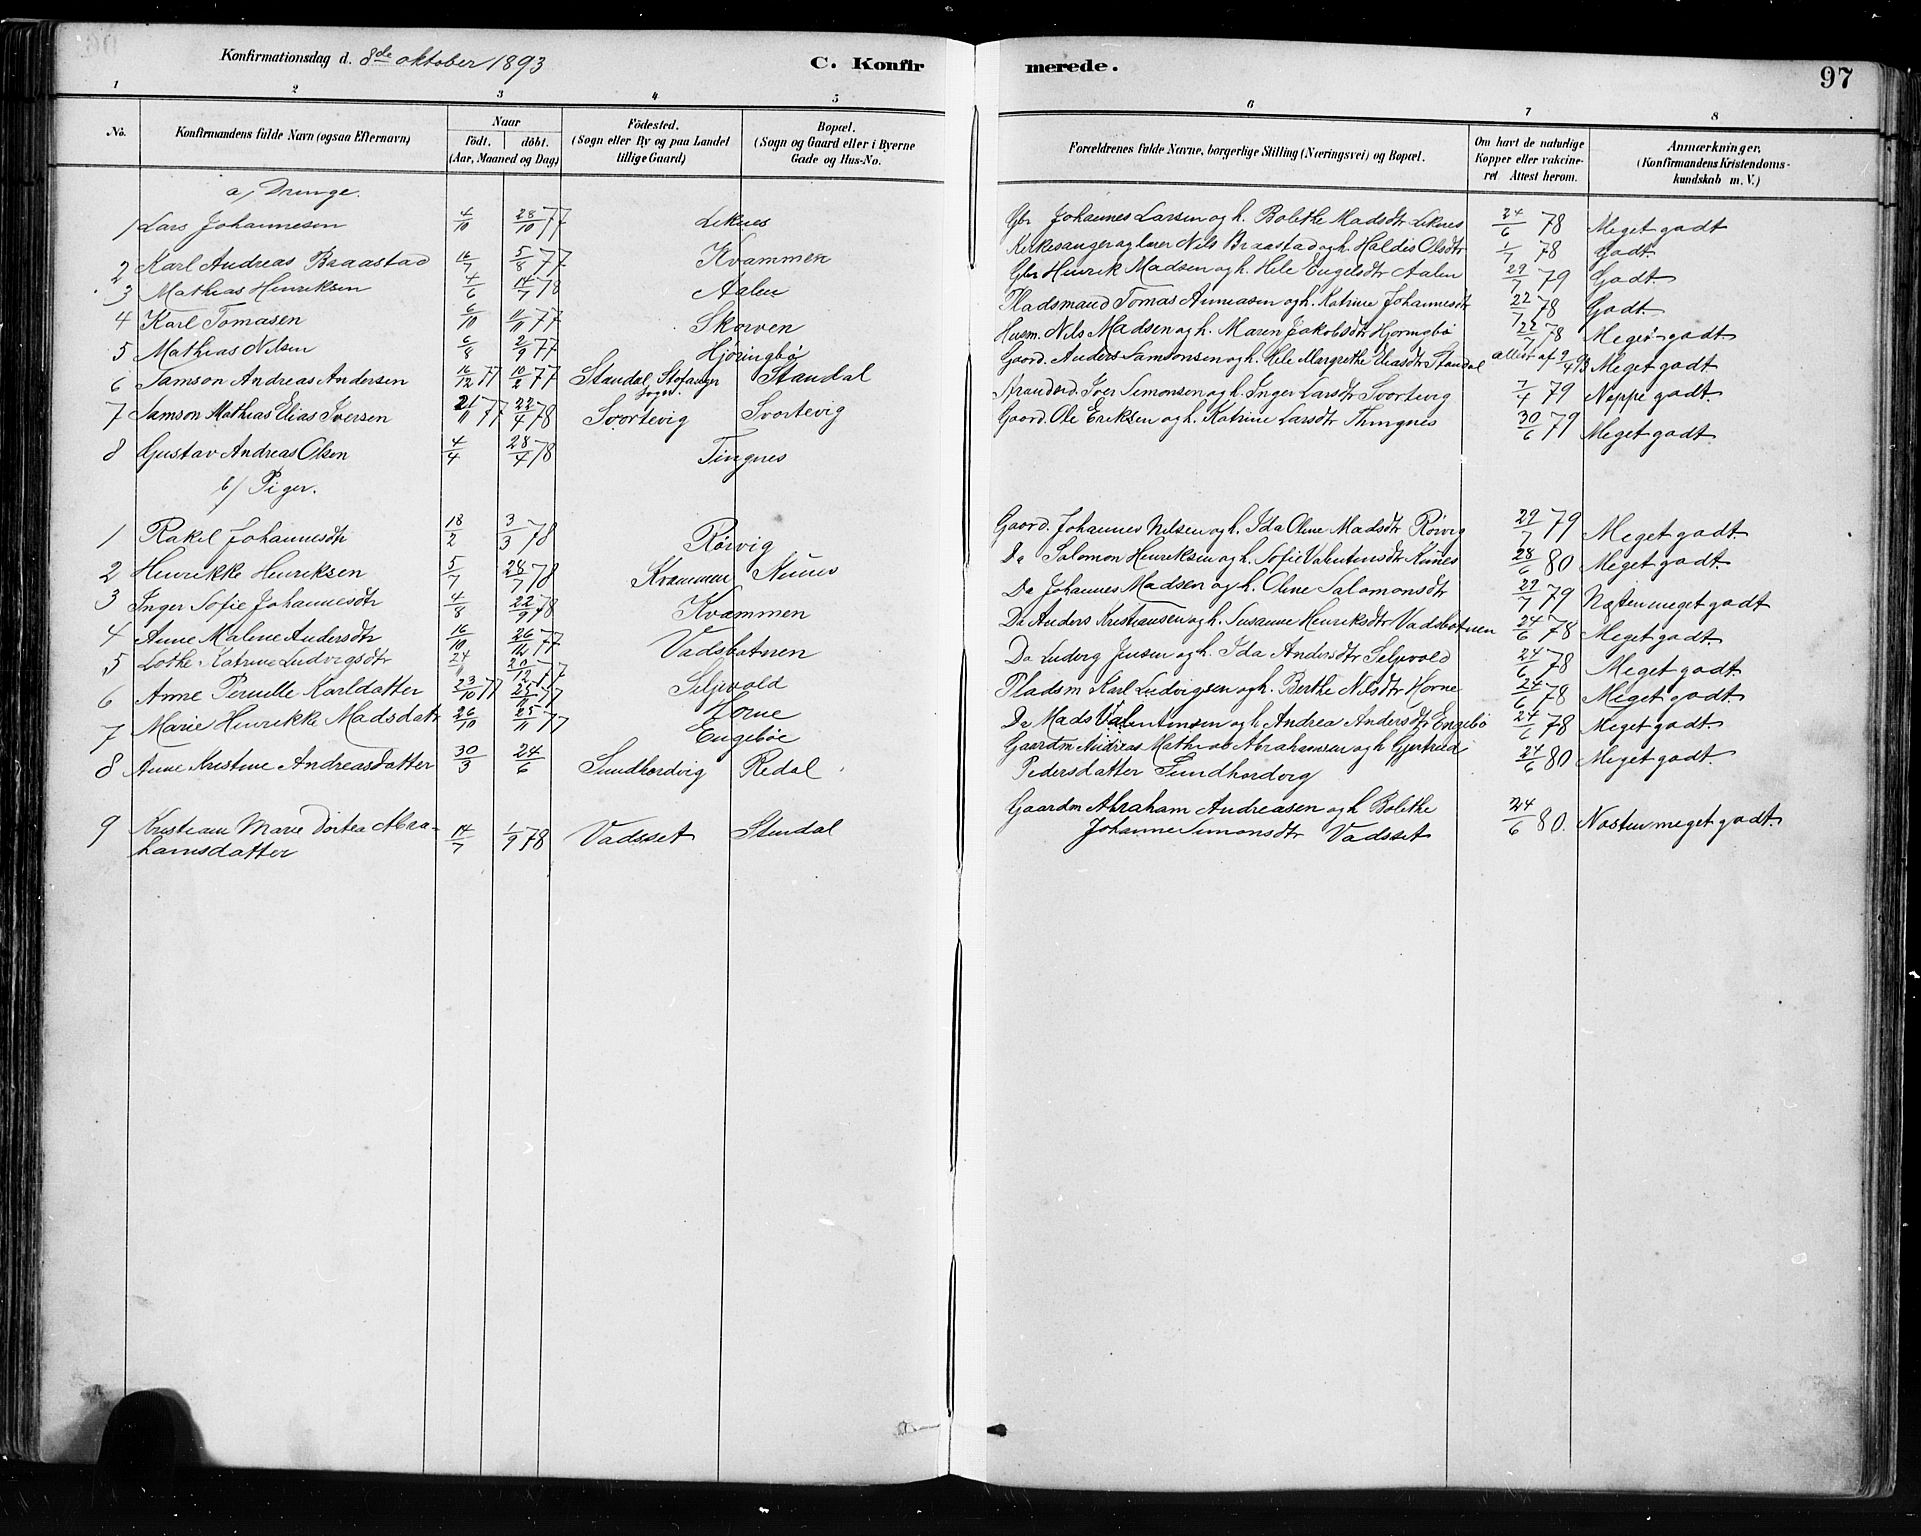 Konfirmationsdag d. 8de oktober 1893 C. Konfirmerede. 97
1 2 3 4 5 6 7 8
No. Konfirmandens fulde Navn (ogsaa Efternavn) Naar födt. döbt. (Aar, Maaned og Dag) Födested. (Sogn eller By og paa Landet tillige Gaard) Bopæl. (Sogn og Gaard eller i Byerne Gade og Hus-No. Forældrenes fulde Navne, borgerlige Stilling (Næringsvei) og Bopæl. Om havt de naturlige Kopper eller vakcineret Attest herom. Anmærkninger. (Konfirmandens Kristendomskundskab m. V.)
a, Drenge.
1 Lars Johannesen 4/10 28/10 77 Leknes Gbr Johannes Larsen og h. Bolethe Madsdtr Leknes 24/6 78 Meget godt
2 Karl Andreas Braastad 16/7 5/8 77 Kvammen Kirkesanger og lærer Nils Braastad og h. Haldis Olsdtr 1/7 78 Godt.
3 Mathias Henriksen 4/6 14/7 78 Aalen Gbr Henrik Madsen og h. Hele Engelsdtr Aalen 29/7 79 Godt.
4 Karl Tomasen 6/10 11/11 77 Skorven Pladsmand Tomas Anneasen og h. Katrine Johannesdtr 22/7 78 Godt.
5 Mathias Nilsen 6/8 2/9 77 Hjöringbö Husm. Nils Madsen og h. Maren Jakobsdtr Hjöringbö 22/7 78 Meget godt
6 Samson Andreas Andersen 16/12 77 10/2 77 Standal Stofangr Sogn. Standal Gaard. Anders Samsonsen og h. Hele Margrethe Eliasdtr Standal attest af 9/4 93 Meget godt
7 Samson Mathias Elias Iversen 21/11 77 22/4 78 Svortevig Svortevig Iver Simonsen og h. Inger Larsdtr Svortevig 7/4 79 Neppe godt.
8 Gustav Andreas Olsen 4/4 28/4 78 Tingnes Gaard. Ole Eriksen og h. Katrine Larsdtr Thingnes 30/6 79 Meget godt.
b/ Piger.
1 Rakel Johannesdtr 18/2 3/3 78 Rörvig Gaard. Johannes Nilsen og h. Ida Oline Madsdtr Rörvig 29/7 79 Meget godt.
2 Henrikke Henriksen 5/7 28/7 78 Kvammen Da Salomon Henriksen og h. Sofie Valentinsdtr 28/6 80 Meget godt.
3 Inger Sofie Johannesdtr 4/8 22/9 78 Kvammen Da Johannes Madsen og h. Oline Salomonsdtr 29/7 79 Næsten meget godt
4 Anne Malene Andersdtr 16/10 26/12 77 Vadsbotnen Da Anders Kristiansen og h. Susanne Henriksdtr Vadsbotnen 24/6 78 Meget godt.
5 Lothe Katrine Ludvigsdtr 24/11 20/12 77 Seljevold Da Ludvig Jensen og h. Ida Andersdtr Seljevold 24/6 78 Meget godt.
6 Anne Pernille Karldatter 23/10 77 25/11 77 Horne Pladsm Karl Ludvigsen og h. Berthe Nilsdtr Horne 24/6 78 Meget godt.
7 Marie Henrikke Madsdatr 26/10 25/11 77 Engeböe Da Mads Valentinsen og h Andrea Andersdtr Engebö 24/6 78 Meget godt.
8 Anne Kristine Andreasdatter 30/3 24/6 Sundhordvig Redal Gaardm Andreas Mathias Abrahamsen og h Gjertrud Pedersdatter Sundhordvig 24/6 80 Meget godt.
9 Kristiane Marie Dortea Abrahamsdatter 14/7 1/9 78 Vadsset Stendal Gaardm Abraham Andreasen og h Bolethe Johanne Simonsdtr Vadsset 24/6 80. Nesten meget godt.